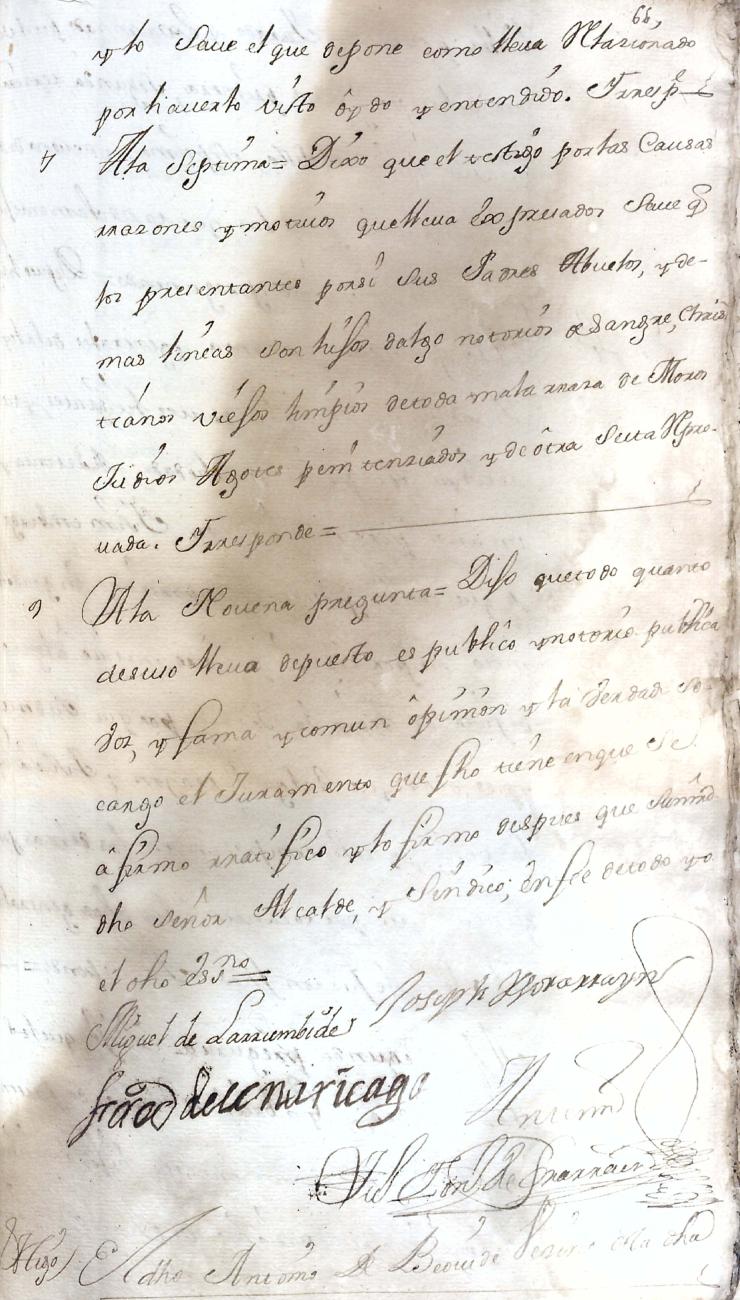 66,
y lo Save el que depone como lleva Relazionado
por haverlo visto óydo y entendido. Yrresp.e
7 A la Septima= Dixo que el testigo por las Causas
rrazones y motivos que lleva Expresados Save q
los presentantes por si sus Padres Abuelos, y de-
mas lineas son hijos dalgo notorios de Sangre, Chris
tianos viejos limpios de toda mala rraza de Moros
Judios Agotes penitenziados y de ôtra Secta Repro-
vada. Yrresponde=
9 A la Novena pregunta= Dijo que todo quanto
desuso lleva depuesto es publico y notorio publica
voz, y fama y comun ôpinion y la Verdad so-
cargo el Juramento que fho tiene en que se
âfirmo rratifico y lo firmo despues que
dho Señor Alcalde, y Sindico, en fee de todo yo
el dho ess.no
Miguel de Larrumbide Joseph
fran.co de
Ante mi
tigo Al dho Antonio de Vezino de la dha